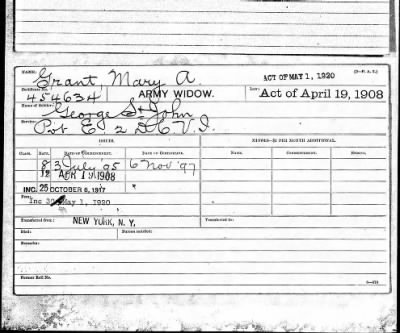 NAME: Grant, Mary A. ACT OF MAY 1, 1920
Certificate No. 454634 ARMY WIDOW. Law: Act of April 19, 1908
Name of Soldier: George St. John
Service: Pvt E 2 D.C.V.I.
ISSUES. MINORS—$2 PER MONTH ADDITIONAL.
CLASS. RATE. DATE OF COMMENCEMENT. DATE OF CERTIFICATE. NAME. COMMENCEMENT. ENDING.
8 3 July '95 6 Nov '97
12 APR 19 1908
INC. 25 OCTOBER 6, 1917
Inc 30 May 1, 1920
Transferred from: NEW YORK, N.Y. Transferred to:
Died: Bureau notified:
Remarks:
Former Roll No.